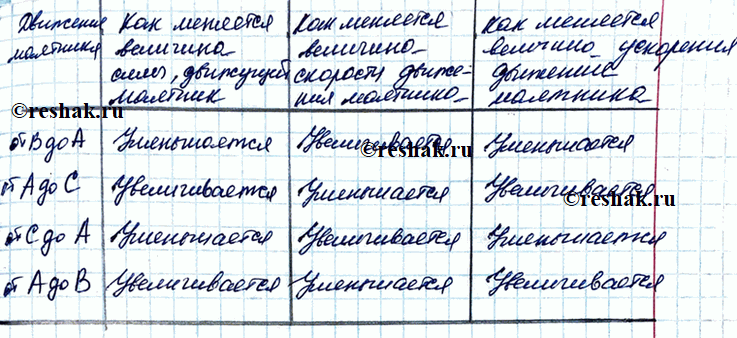 Движения маятника | Как меняется величина силы, движущей маятник | Как меняется величина скорости движения маятника | Как меняется величина ускорения движения маятника
©reshak.ru
от B до A Уменьшается Увеличивается Уменьшается
©reshak.ru
от A до C Увеличивается Уменьшается Увеличивается
©reshak.ru
от C до A Уменьшается Увеличивается Уменьшается
от A до B Увеличивается Уменьшается Увеличивается